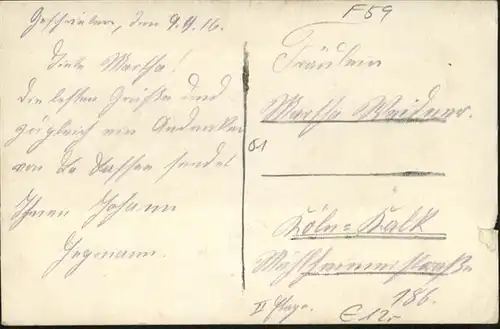 Geschrieben, den 9.9.16.
Liebe Martha!
Die besten Grüße und
zugleich ein Andenken
von La Bassee sendet
Ihnen Johann
Hegmann.
F59
Fräulein
Martha Weidner.
51
Köln=Kalk
Mülheimerstraße
186.
II Etage.
E 12,-